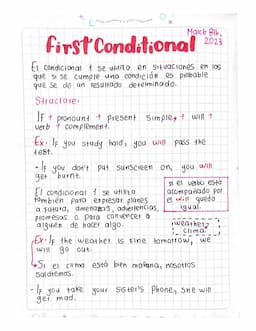 March 8th,
2023
First Conditional
El condicional 1 se utiliza en situaciones en las
que si se cumple una condición es probable
que se dé un resultado determinado.
Structure:
If + pronount + present simple, + will +
verb + complement.
Ex: If you study hard, you will pass the
test.
- If you don't put sunscreen on, you will
get burnt.
El condicional 1 se utiliza
también para expresar planes
a futuro, amenazas, advertencias,
promesas o para convencer a
alguien de hacer algo.
si el verbo está
acompañado por
es will queda
igual.
weather=
clima.
Ex: If the weather is fine tomorrow, we
will go out.
Si el clima está bien mañana, nosotros
saldremos.
- If you take your sister's phone, she will
get mad.